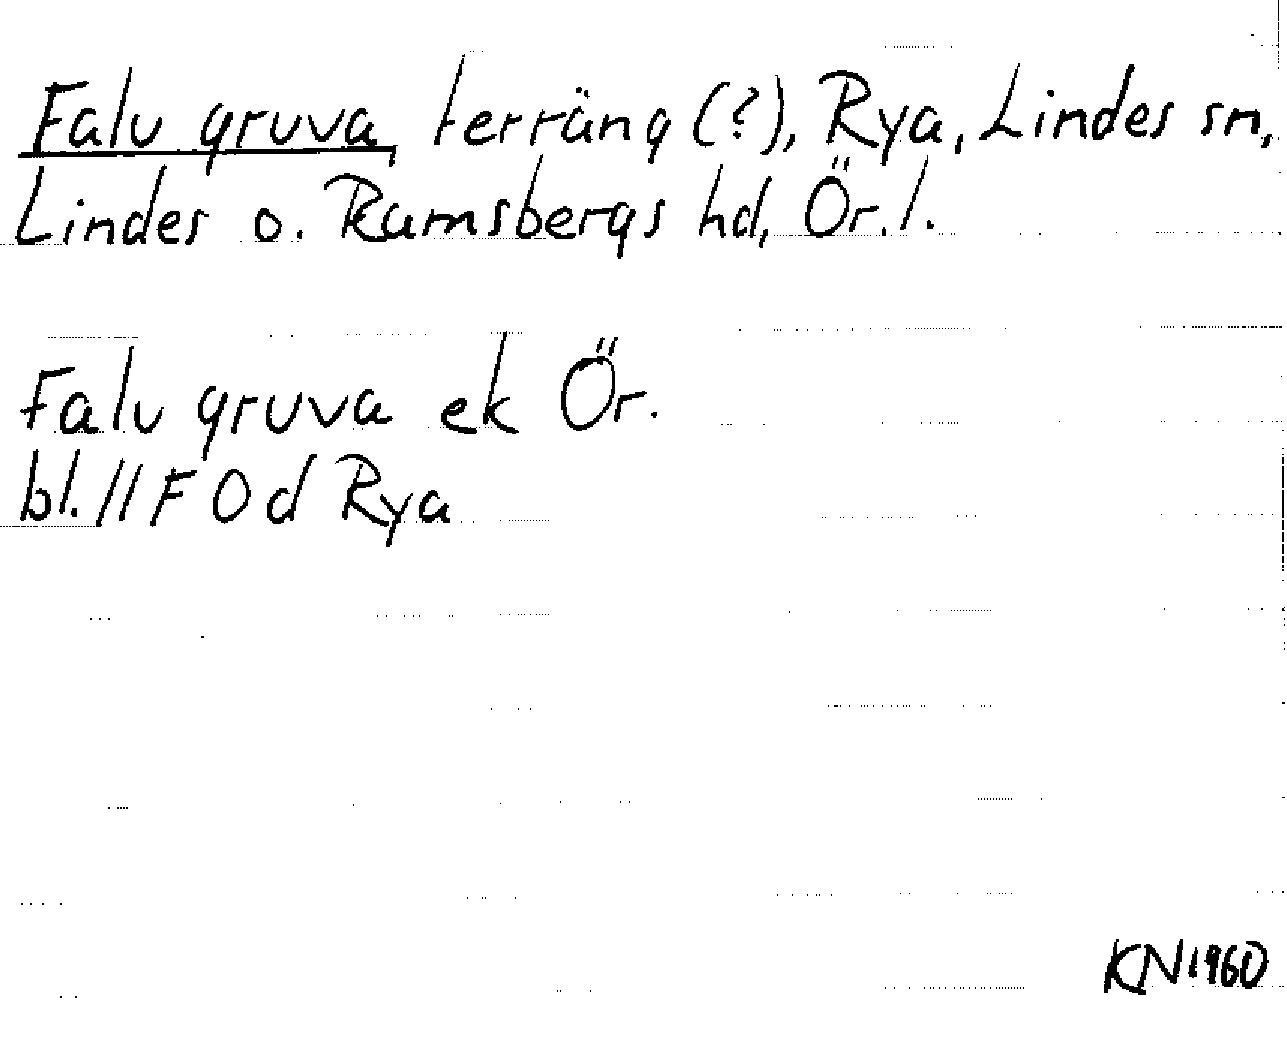 Falu gruva, terräng (?), Rya, Lindes sn,
Lindes o. Ramsbergs hd, Ör. l.
Falu gruva ek Ör.
bl. 11 F 0 d Rya
KN 1960